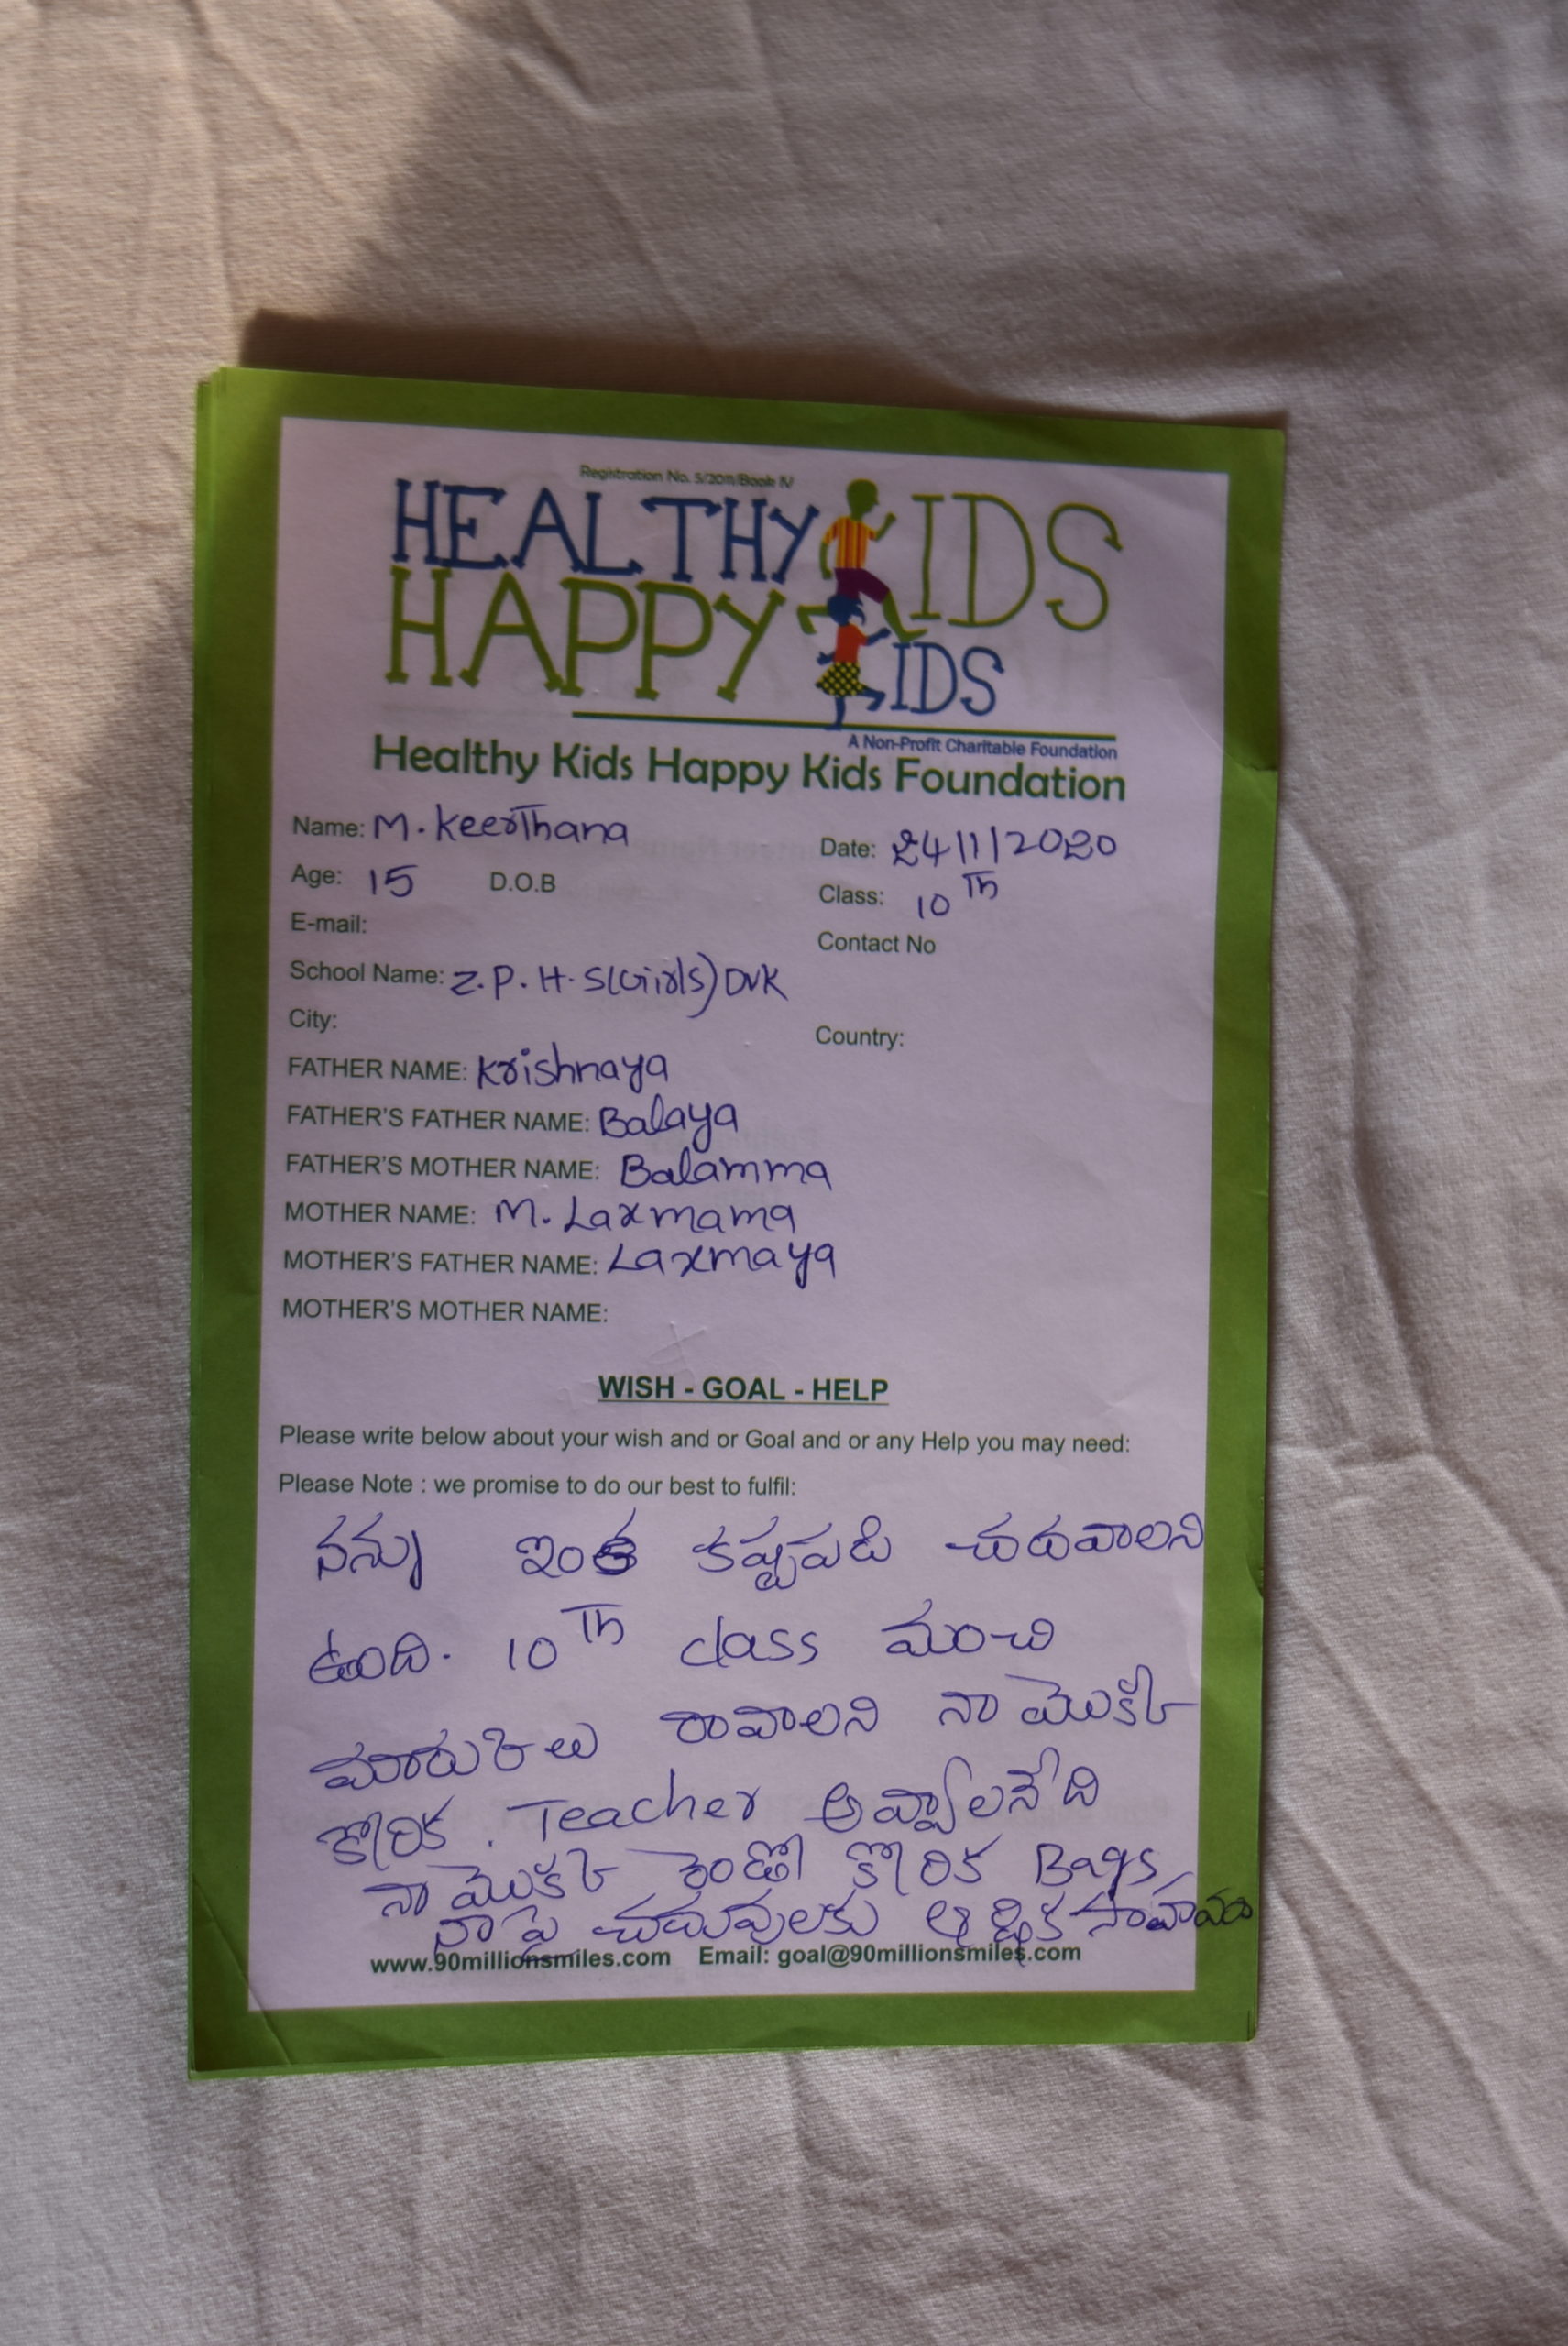 Registration No. 5/2011/Book IV
HEALTHY KIDS
HAPPY KIDS
A Non-Profit Charitable Foundation
Healthy Kids Happy Kids Foundation
Name: M. Keerthana
Date: 24/1/2020
Age: 15 D.O.B
Class: 10 Th
E-mail:
Contact No
School Name: Z.P.H.S(Girls) DVK
City:
Country:
FATHER NAME: Krishnaya
FATHER'S FATHER NAME: Balaya
FATHER'S MOTHER NAME: Balamma
MOTHER NAME: M. Laxmama
MOTHER'S FATHER NAME: Laxmaya
MOTHER'S MOTHER NAME:
WISH - GOAL - HELP
Please write below about your wish and or Goal and or any Help you may need:
Please Note : we promise to do our best to fulfil:
నన్ను ఇంత కష్టపడి చదవాలని
ఉంది. 10 Th class మంచి
మారుకలు రావాలని నా మొకక
కోరిక. Teacher అవ్వాలనేది
నా మొకక రెండో కోరిక Bags
నా పై చదువులకు ఆర్థిక
www.90millionsmiles.com Email: goal@90millionsmiles.com